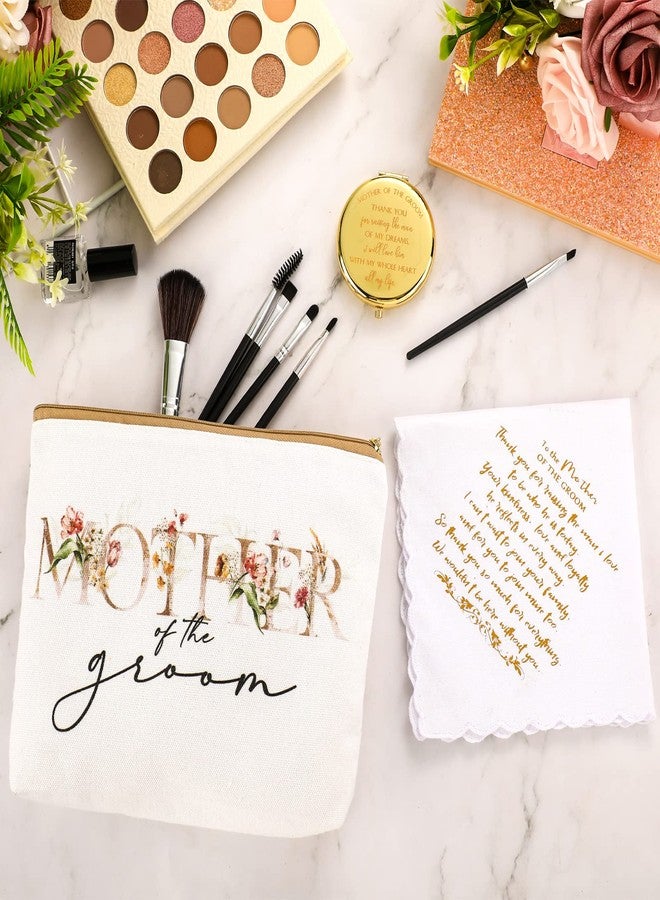 MOTHER OF THE GROOM
THANK YOU
for raising the man
OF MY DREAMS
i will love him
WITH MY WHOLE HEART
all my life
To the Mother
OF THE GROOM
Thank you for raising the man I love
to be who he is today
Your kindness, love and loyalty
he reflects in every way
I can't wait to join your family,
and for you to join mine too
So thank you so much for everything
We wouldn't be here without you
MOTHER
of the
groom